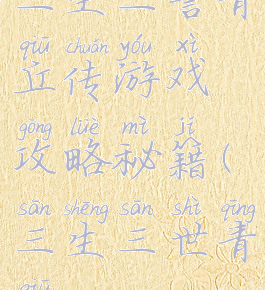 三生三
qiū chuán yóu xì
丘传游戏
gōng lüè mì jí
攻略秘籍(
sān shēng sān shì qīng
三生三世青
qiū